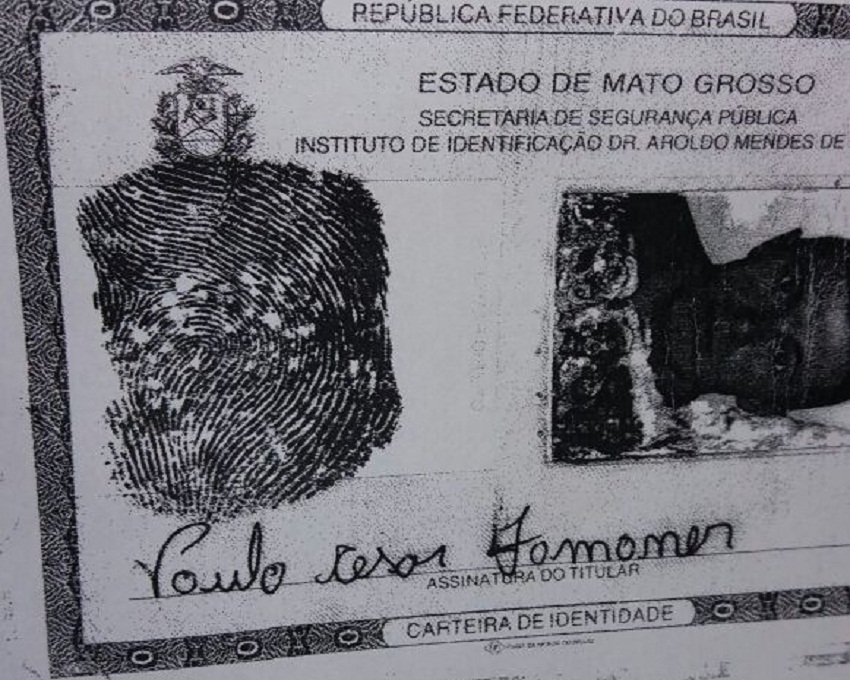 REPÚBLICA FEDERATIVA DO BRASIL
ESTADO DE MATO GROSSO
SECRETARIA DE SEGURANÇA PÚBLICA
INSTITUTO DE IDENTIFICAÇÃO DR. AROLDO MENDES DE
Paulo Cesar Famomer
ASSINATURA DO TITULAR
CARTEIRA DE IDENTIDADE